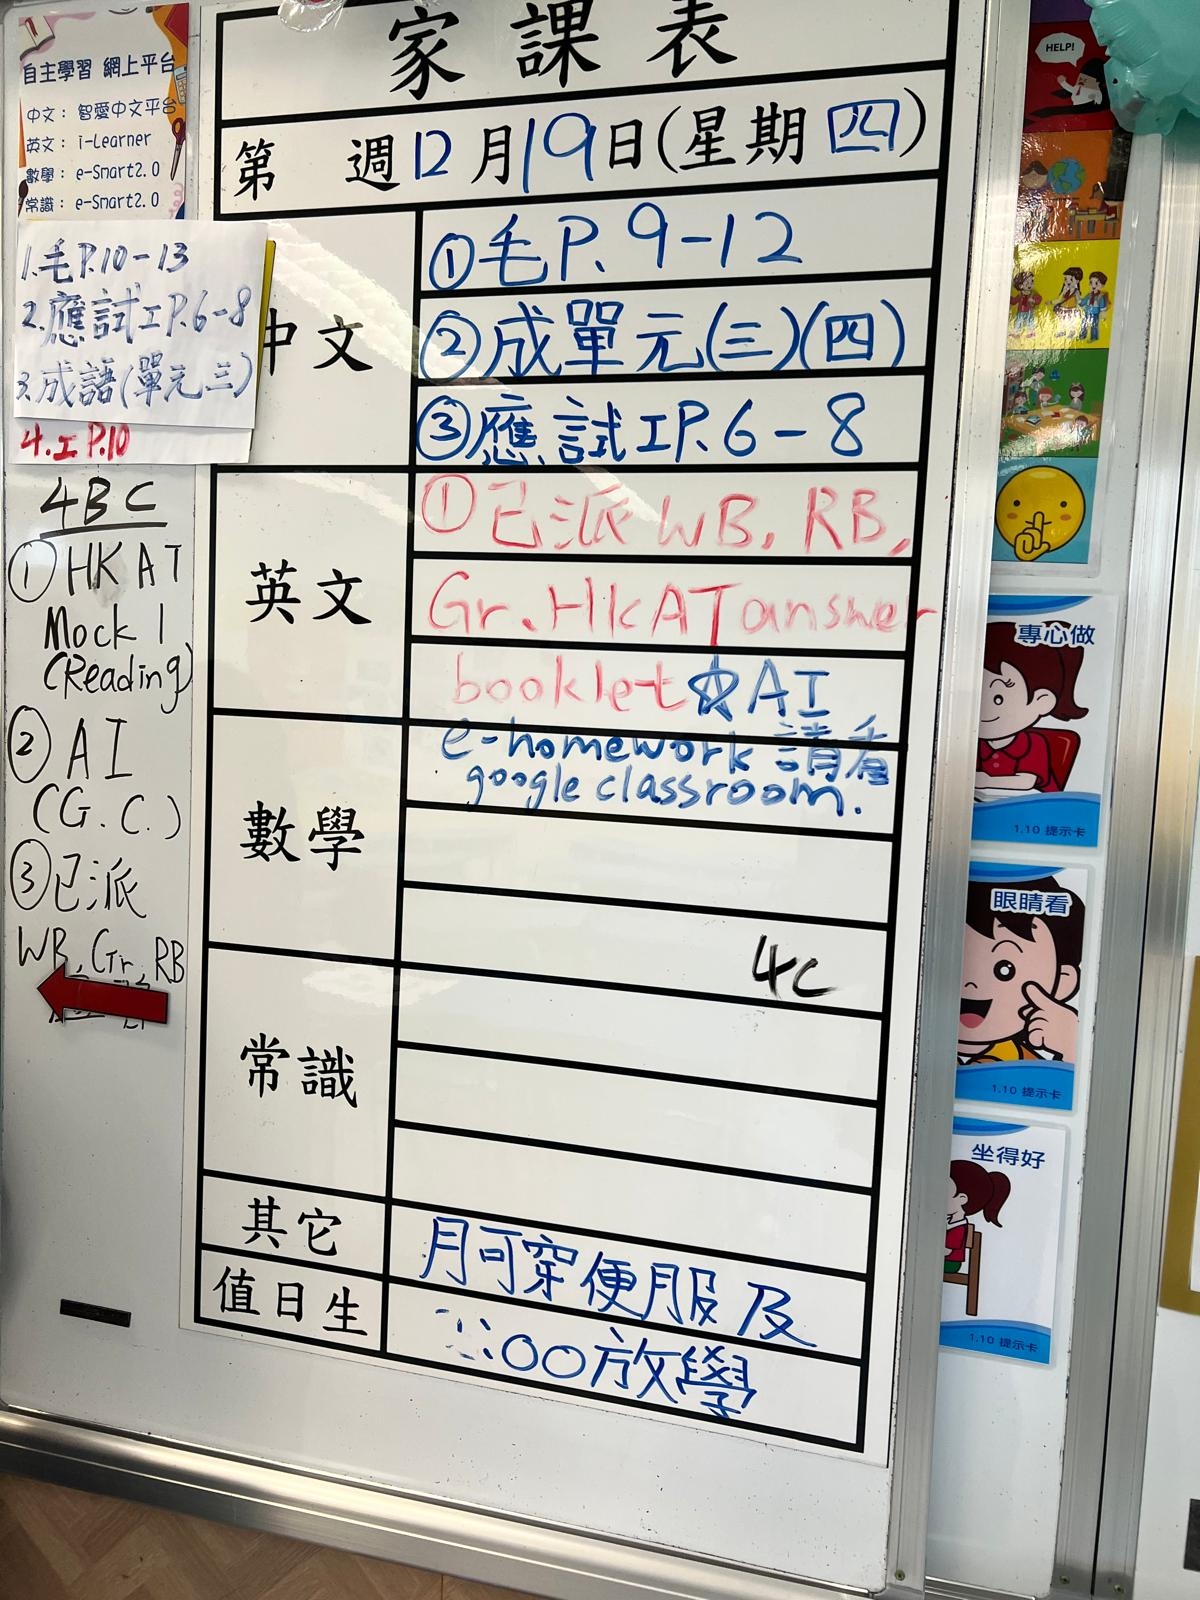 家課表
第 週12月19日(星期四)
中文
①毛P.9-12
②成單元(三)(四)
③應試工P.6-8
英文
①已派WB, RB,
Gr. HKAT answer
booklet☆AI
e-homework 請看
google classroom.
數學
4C
常識
其它
月可穿便服及
值日生
00放學
自主學習 網上平台
中文： 智愛中文平台
英文： i-Learner
數學： e-Smart2.0
常識： e-Smart2.0
1.毛P.10-13
2.應試工P.6-8
3.成語(單元三)
4.工P.10
4BC
①HKAT
Mock 1
(Reading)
②AI
(G.C.)
③已派
WB, Gr, RB
HELP!
專心做
1.10 提示卡
眼睛看
1.10 提示卡
坐得好
1.10 提示卡